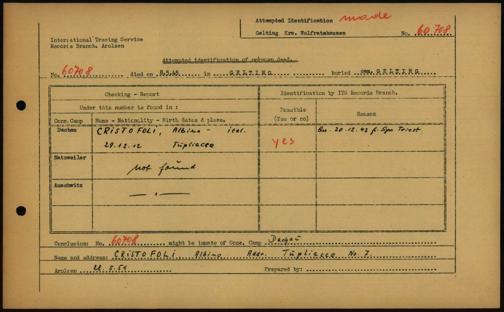 Attempted Identification made
Gelting Krs. Wolfratshausen No. 60708
International Tracing Service
Records Branch. Arolsen
Attempted identification of unknown dead.
No. 60708 died on in GELTING buried GELTING
Checking - Report
Identification by ITS Records Branch.
Under this number is found in :
Possible
(Yes or no)
Reason
Conc. Camp Name - Nationality - Birth dates & place.
Dachau CRISTOFOLI, Albino - ital.
29.12.12 Tüpliacca
yes
20.12.43 f. Spo Triest
Natzweiler not found
Auschwitz
Conclusion: No. 60708 might be inmate of Conc. Camp Dachau
Name and address: CRISTOFOLI Albino Addr. Tüpliacca No. 7
Arolsen 22.5.51 Prepared by: